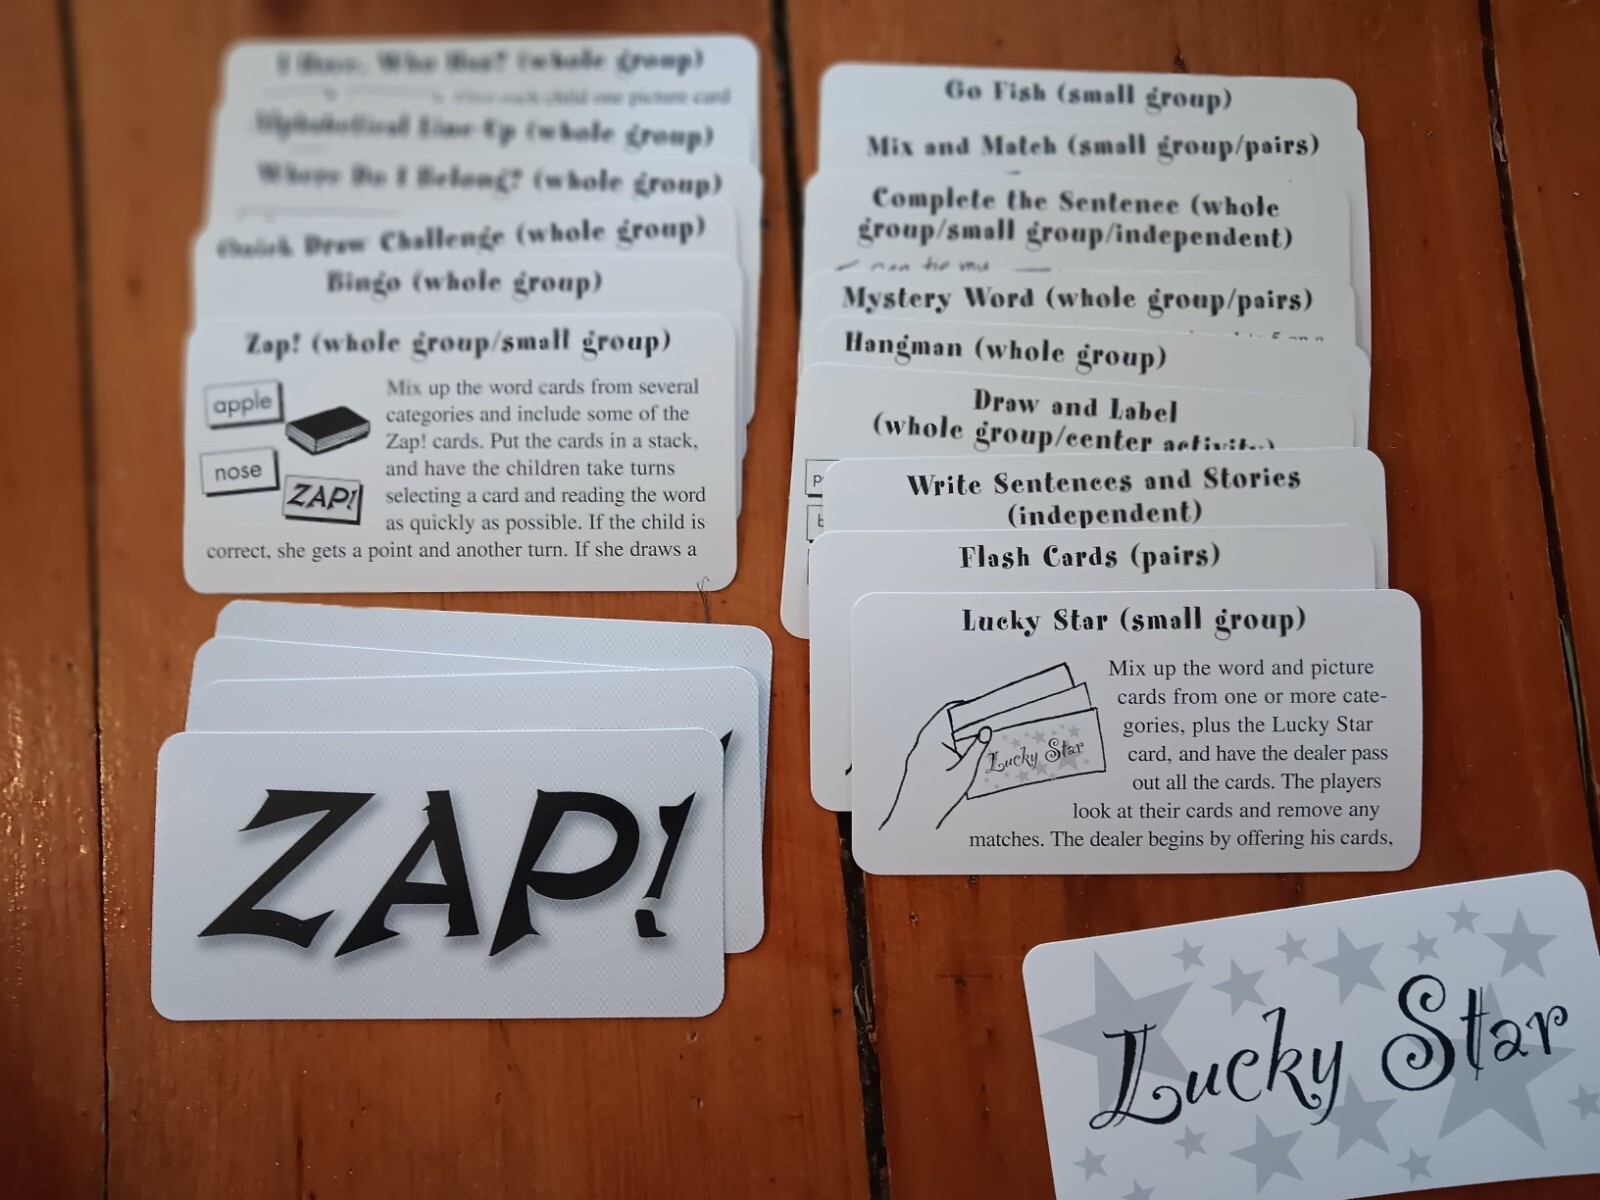 I Have, Who Has? (whole group)
Give each child one picture card
Alphabetical Line-Up (whole group)
Where Do I Belong? (whole group)
Quick Draw Challenge (whole group)
Bingo (whole group)
Zap! (whole group/small group)
apple
nose
ZAP!
Mix up the word cards from several
categories and include some of the
Zap! cards. Put the cards in a stack,
and have the children take turns
selecting a card and reading the word
as quickly as possible. If the child is
correct, she gets a point and another turn. If she draws a
ZAP!
Go Fish (small group)
Mix and Match (small group/pairs)
Complete the Sentence (whole
group/small group/independent)
Mystery Word (whole group/pairs)
Hangman (whole group)
Draw and Label
(whole group/center activity)
Write Sentences and Stories
(independent)
Flash Cards (pairs)
Lucky Star (small group)
Lucky Star
Mix up the word and picture
cards from one or more cate-
gories, plus the Lucky Star
card, and have the dealer pass
out all the cards. The players
look at their cards and remove any
matches. The dealer begins by offering his cards,
Lucky Star